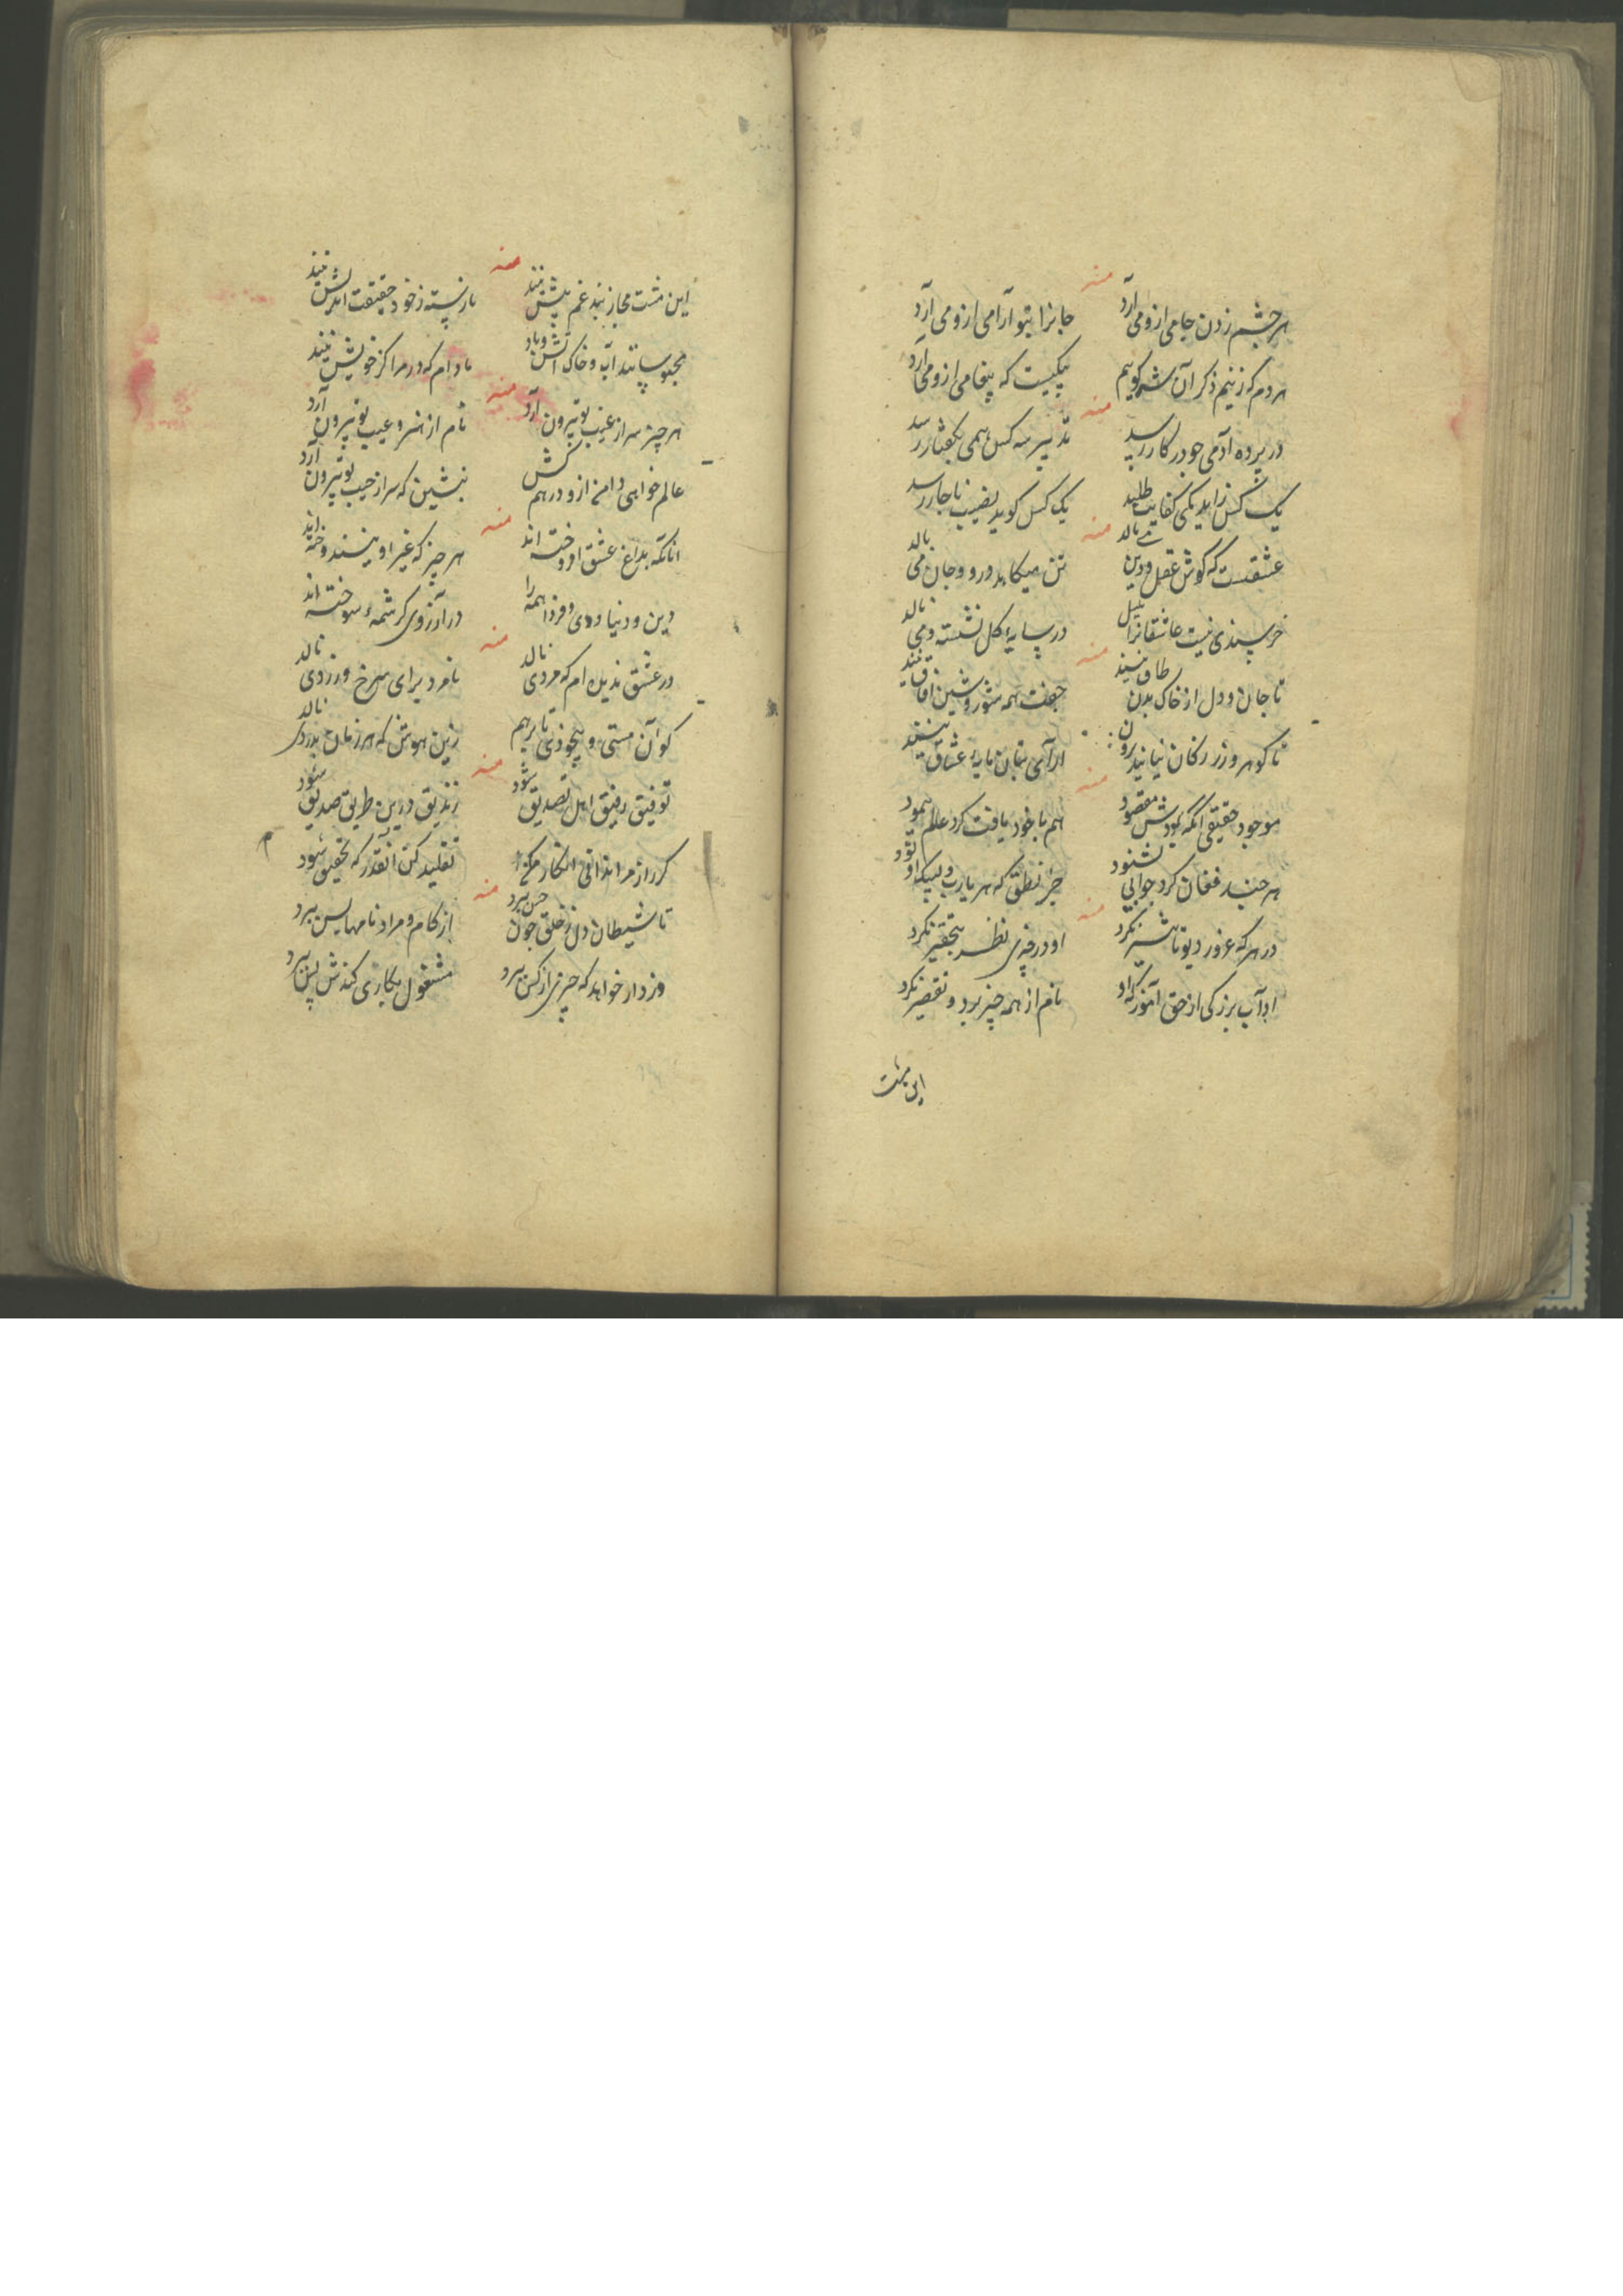 منه
هر چشم زدن جامی ازو می آرد جانرا بتو آرامی ازو می آرد
هردم که زنیم ذکر آن شه گوییم پیکیست که پیغامی ازو می آرد
منه
در پرده آدمی چو در کار رسد تدبیر سه کس همی بگفتار رسد
یک کس زاید یکی کفایت طلبد یک کس گوید نصیب ناچار رسد
منه
عشقست که گوش عقل و دین می مالد تن میکاهد درو و جان می بالد
خرسندی نیست عاشقانرا بلبل در سایه گل نشسته و می نالد
منه
تا جان و دل از خاک بدن طاق نیند جفت همه شور و شین آفاق نیند
تا گوهر و زر ز کان نیایند برون آرای بتان مایه عشاق نیند
منه
موجود حقیقی آنکه بودش مقصود هم با خود یافت کرد عالم بنمود
هر چند فغان کرد جوابی نشنود جز نطق که هر یارب و لبیک او بود
منه
در هر که غرور دیو تأثیر نکرد او در چیزی نظر بتحقیر نکرد
آداب بزرگی از حق آموز که او نام از همه چیز برد و تقصیر نکرد
این مشت
منه
این مشت مجاز بند غم بیش نیند نارسته ز خود حقیقت اندیش نیند
محبوسانند آب و خاک آتش و باد مادام که در مراکز خویش نیند
منه
هر چیز سر از غیب تو بیرون آرد نام از هنر و عیب تو بیرون آرد
عالم خواهی دامن ازو درهم کش بنشین که سر از جیب تو بیرون آرد
منه
آنانکه بداغ عشق او دوخته اند هر چیز که غیر او ببیند سوخته اند
دین و دنیا و دی و فردا همه را در آرزوی کرشمه سوخته اند
منه
در عشق ندیده ام که مردی نالد نامرد برای سرخ و زردی نالد
کو آن مستی و بیخودی تا برهم زین هوش که هر زمان بدردی نالد
منه
توفیق رفیق اهل تصدیق شود زندیق درین طریق صدیق شود
گر راز مرا ندانی انکار مکن تقلید کن آنقدر که تحقیق شود
منه
تا شیطان دل ز خلق چون خس ببرد از کام و مراد نامها بس ببرد
دزد ار خواهد که چیزی از کس ببرد مشغول بکاری کندش پس ببرد